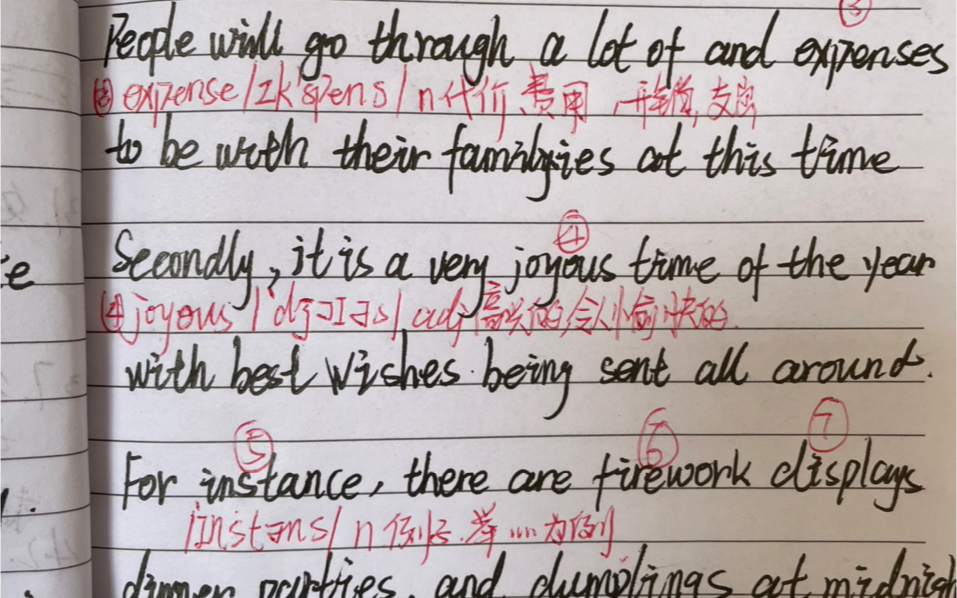 ③
People will go through a lot of and expenses
③ expense /ɪk'spens/ n 代价、费用、开销, 支出
to be with their families at this time
④
Secondly, it is a very joyous time of the year
e
④ joyous /'dʒɔɪəs/ adj 高兴的 令人愉快的.
with best wishes being sent all around.
⑤ ⑥ ⑦
For instance, there are firework displays
/ɪnstəns/ n 例子. 举....为例
dinner parties, and dumplings at midnigh